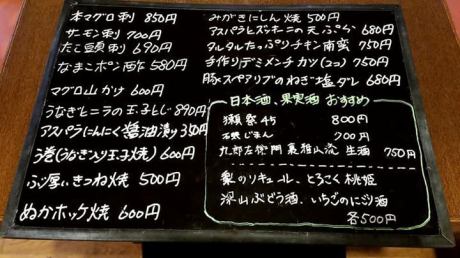 本マグロ刺 850円
サーモン刺 700円
たこ頭刺 690円
なまこポン酢 580円
マグロ山かけ 600円
うなぎとニラの玉子とじ 890円
アスパラにんにく醤油漬け 340円
う巻(うなぎ入り玉子焼) 600円
ぶ厚いきつね焼 500円
ぬかホッケ焼 600円
みがきにしん焼 500円
アスパラとズッキーニの天ぷら 680円
タルタルたっぷりチキン南蛮 750円
手作りデミメンチカツ(2コ) 750円
豚スペアリブのねぎ塩ダレ 680円
日本酒、果実酒 おすすめ
獺祭45 800円
石鎚じまん 700円
九郎左衛門 裏雅山流 生酒 750円
梨のリキュール、とろこく桃姫
深山ぶどう酒、いちごのにごり酒
各500円